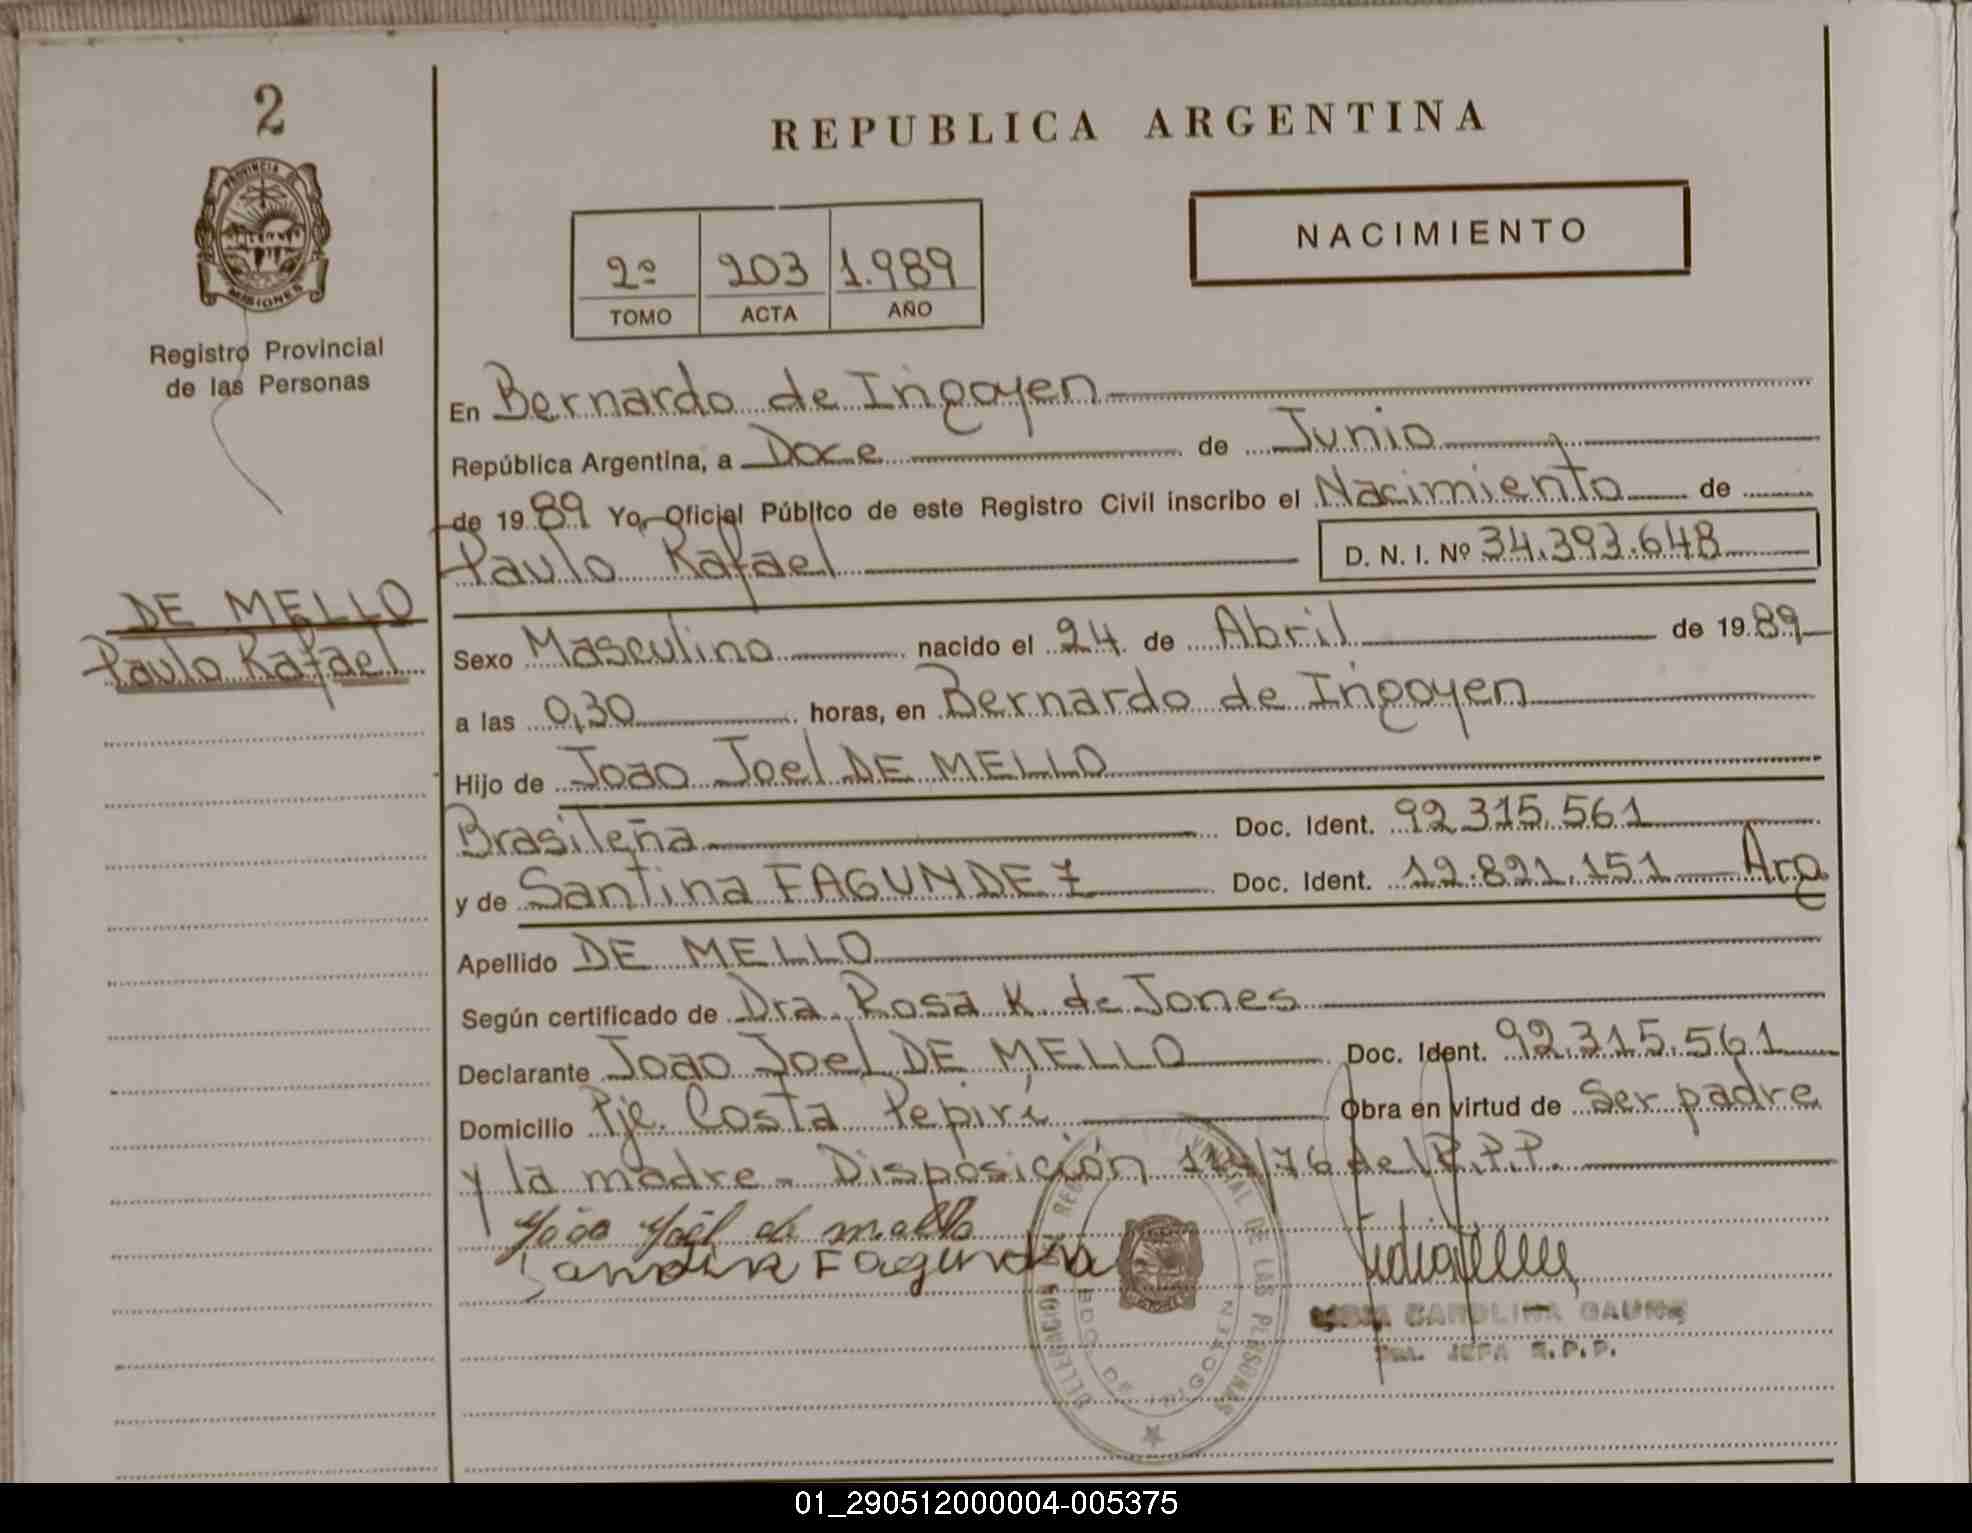 2
REPUBLICA ARGENTINA
PROVINCIA DE
MISIONES
Registro Provincial
de las Personas
2º 203 1.989
TOMO ACTA AÑO
NACIMIENTO
En Bernardo de Irigoyen
República Argentina, a Doce de Junio
de 1989 Yo, Oficial Público de este Registro Civil inscribo el Nacimiento de
Paulo Rafael D. N. I. Nº 34.393.648
DE MELLO
Paulo Rafael
Sexo Masculino nacido el 24 de Abril de 1989
a las 0,30 horas, en Bernardo de Irigoyen
Hijo de Joao Joel DE MELLO
Brasileña Doc. Ident. 92.315.561
y de Santina FAGUNDEZ Doc. Ident. 12.821.151 Arg
Apellido DE MELLO
Según certificado de Dra. Rosa K. de Jones
Declarante Joao Joel DE MELLO Doc. Ident. 92.315.561
Domicilio Pje. Costa Pepirí Obra en virtud de Ser padre
y la madre - Disposición /76 del R.P.P.
João Joél de mello
Fagundes
DELEGACION REGISTRO PROVINCIAL DE LAS PERSONAS
BDO. DE IRIGOYEN
CAROLINA
JEFA R.P.P.
01_290512000004-005375